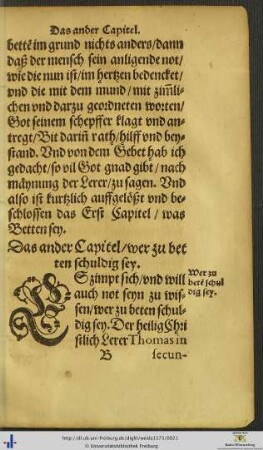 Das ander Capitel.
bettẽ im grund nichts anders/dann
daß der mensch sein anligende not/
wie die nun ist/im hertzen bedencket/
vnd die mit dem mund/mit zim̃li-
chen vnd darzu geordneten worten/
Got seinem schepffer klagt vnd an-
tregt/Bit darin̄ rath/hilff vnd bey-
stand. Vnd von dem Gebet hab ich
gedacht/so vil Got gnad gibt/nach
maynung der Lerer/zu sagen. Vnd
also ist kurtzlich auffgelößt vnd be-
schlossen das Erst Capitel/was
Betten sey.
Das ander Capitel/wer zu bet
ten schuldig sey.
ES zimpt sich/vnd will
auch not seyn zu wis-
sen/wer zu beten schul-
dig sey. Der heilig Chri
stlich Lerer Thomas in
Wer zu
betẽ schul
dig sey.
B secun-
http://dl.ub.uni-freiburg.de/diglit/
© Universitätsbibliothek Freiburg
Baden-Württemberg